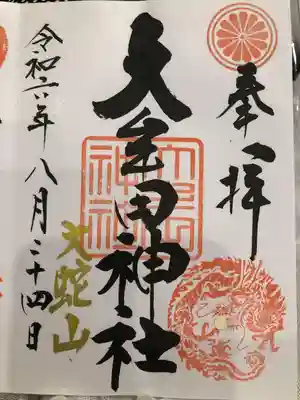 奉拝
大牟田神社
大蛇山
令和六年八月二十四日